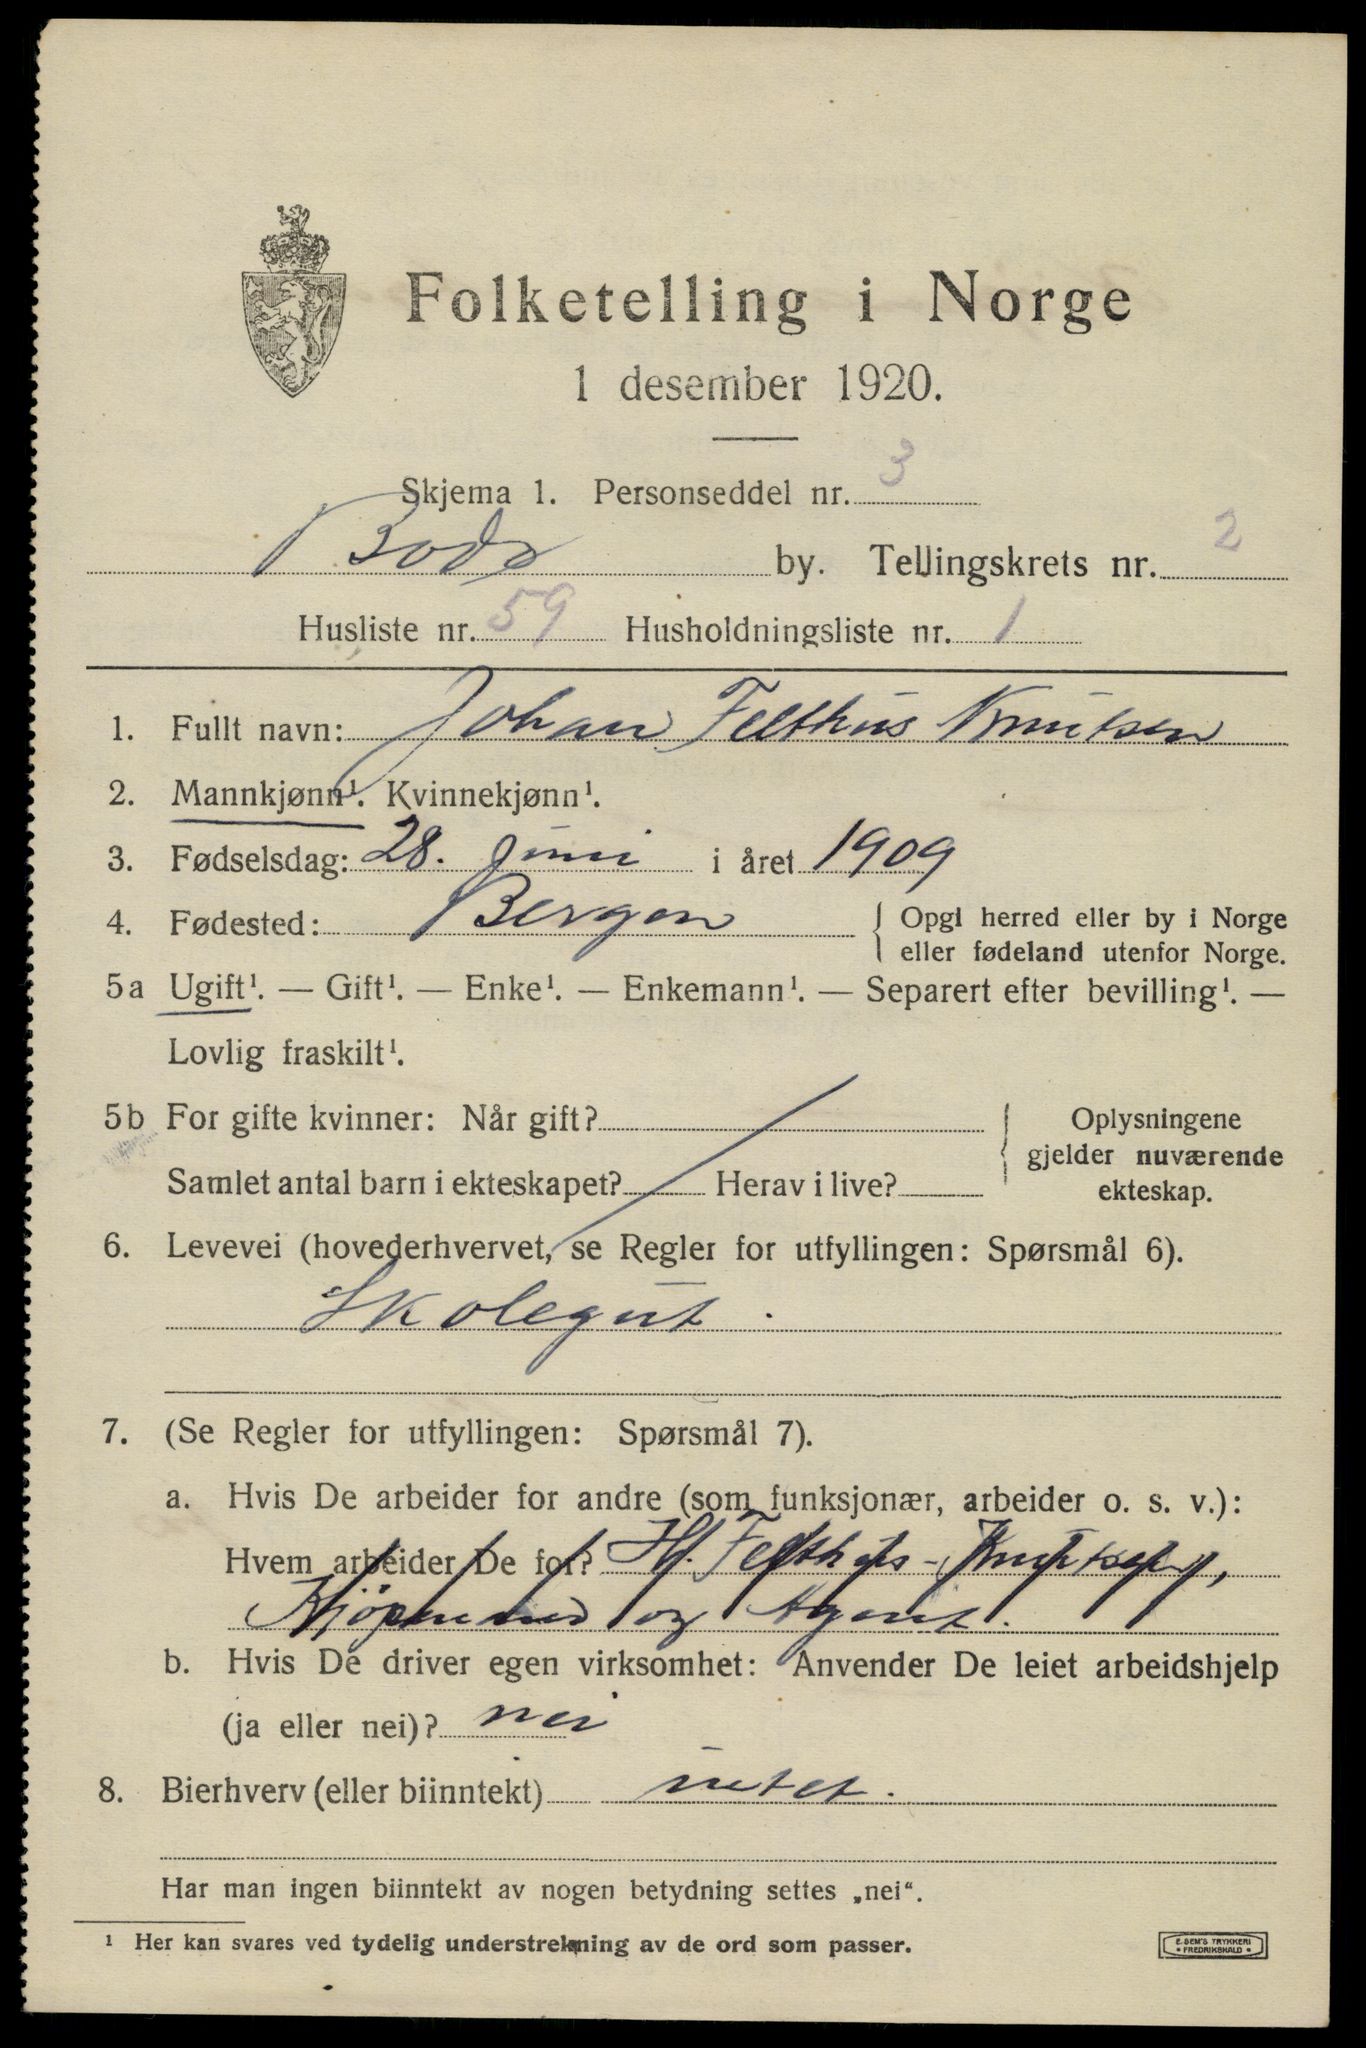 Folketelling i Norge
1 desember 1920.
Skjema 1. Personseddel nr. 3
Bodø by. Tellingskrets nr. 2
Husliste nr. 59 Husholdningsliste nr. 1
1. Fullt navn: Johan Felthus Knutsen
2. Mannkjønn¹. Kvinnekjønn¹.
3. Fødselsdag: 28. Juni i året 1909
4. Fødested: Bergen { Opgi herred eller by i Norge
eller fødeland utenfor Norge.
5a Ugift¹. — Gift¹. — Enke¹. — Enkemann¹. — Separert efter bevilling¹. —
Lovlig fraskilt¹.
5b For gifte kvinner: Når gift? { Oplysningene
gjelder nuværende
Samlet antal barn i ekteskapet? Herav i live? ekteskap.
6. Levevei (hovederhvervet, se Regler for utfyllingen: Spørsmål 6).
Skolegut.
7. (Se Regler for utfyllingen: Spørsmål 7).
a. Hvis De arbeider for andre (som funksjonær, arbeider o. s. v.):
Hvem arbeider De for? Hj. Felthus-Knutsen,
Kjöpmand og Agent.
b. Hvis De driver egen virksomhet: Anvender De leiet arbeidshjelp
(ja eller nei)? nei
8. Bierhverv (eller biinntekt) intet.
Har man ingen biinntekt av nogen betydning settes „nei“.
¹ Her kan svares ved tydelig understrekning av de ord som passer.
E. SEM'S TRYKKERI
• FREDRIKSHALD •